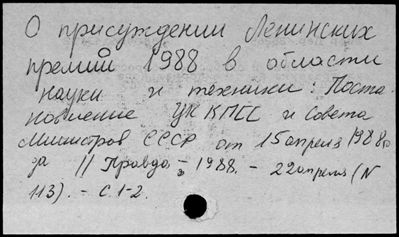 О присуждении Ленинских
премий 1988 в области
науки и техники: Поста-
новление ЦК КПСС и Совета
Министров СССР от 15 апреля 1988г
за // Правда. - 1988. - 22 апреля (N
113). - С. 1-2.